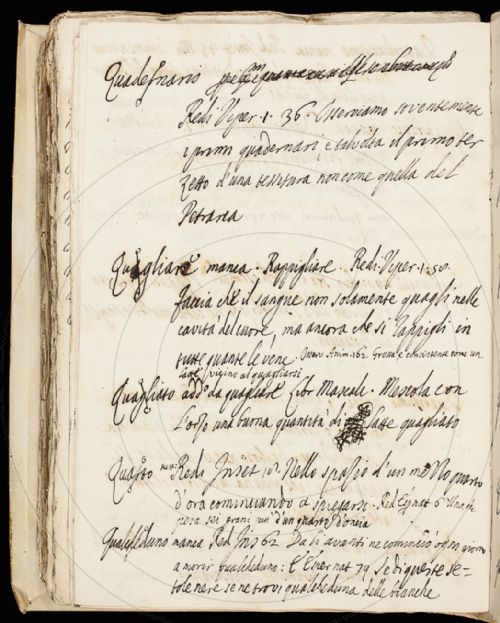 Quadernario
Redi Viper. 1. 36. Osserviamo soventemente
i primi quadernari, e talvolta il primo ter
zetto d'una testura non come quella del
Petrarca
Quagliare manca. Rappigliare. Redi. Viper. 1.
faccia che il sangue non solamente quagli nelle
cavità del cuore, ma ancora che si rappigli in
tutte quante le vene. Anim. 162. Grossa e consistente come un
latte vicino al quagliarsi
Quagliato add. da quagliare. Mascal. Mescola con
l'orzo una buona quantità di latte quagliato
Quarto Redi Inset. Nello spazio d'un mezzo quarto
d'ora cominciando a spiegarsi. Red.
pesa sei grani un d'un quarto d'oncia
Qualcheduno manca Red. Ins 62 Da lì avanti ne cominciò ogni giorno
a morir qualcheduno: E 79 Se di queste se-
tole nere se ne trovi qualcheduna delle bianche